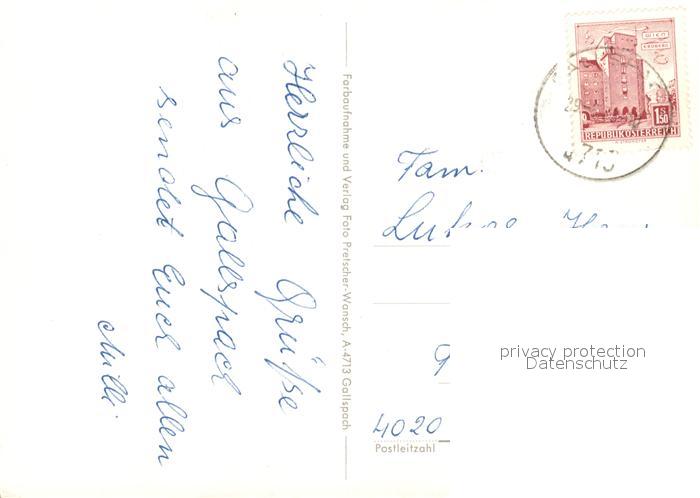 Herzliche Grüße
aus Gallspach
sendet Euch allen
Milli
Farbaufnahme und Verlag Foto Pretscher-Wansch, A-4713 Gallspach
WIEN
ERDBERG
1S50
REPUBLIK ÖSTERREICH
4713
Fam.
4020
Postleitzahl
privacy protection
Datenschutz